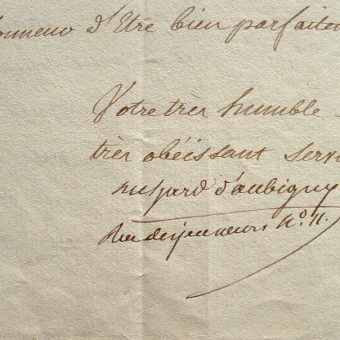 honneur d'Etre bien parfaitem
Votre très humble
très obéissant servi
d'aubigny
Rue des jeuneurs N.º 11.